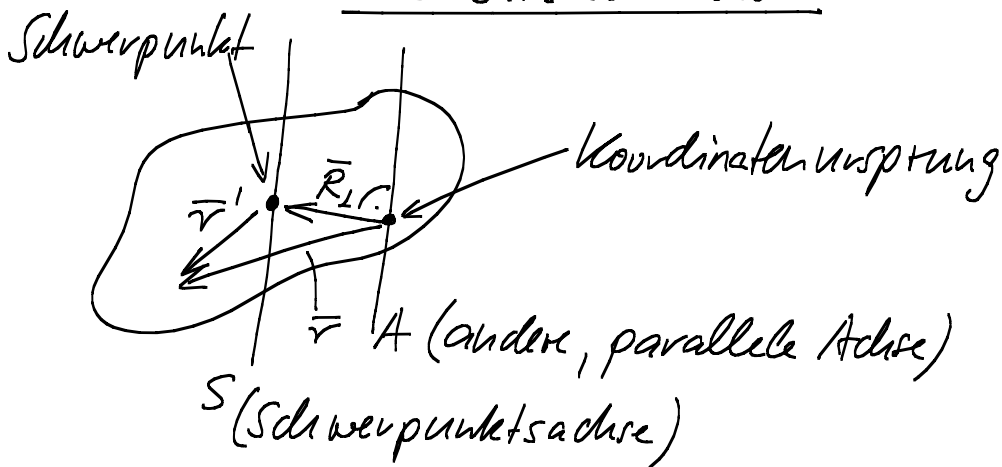 Schwerpunkt
Koordinatenursprung
R̅⊥
r̅'
r̅
A (andere, parallele Achse)
S (Schwerpunktsachse)